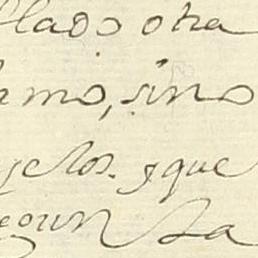 llado otra
mo, sino
yelos. y que
egun la